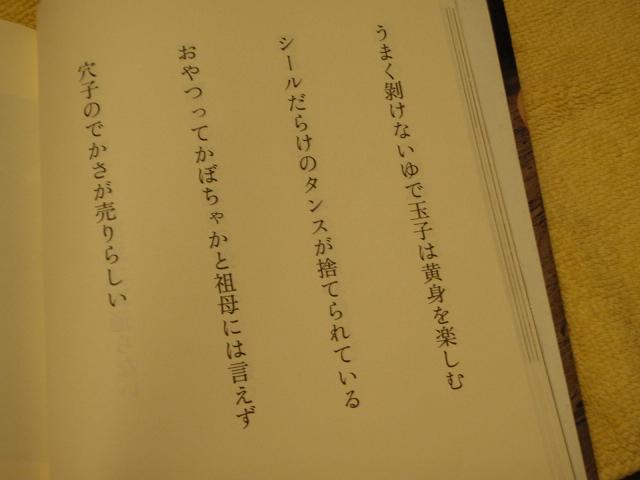 うまく剝けないゆで玉子は黄身を楽しむ
シールだらけのタンスが捨てられている
おやつってかぼちゃかと祖母には言えず
穴子のでかさが売りらしい